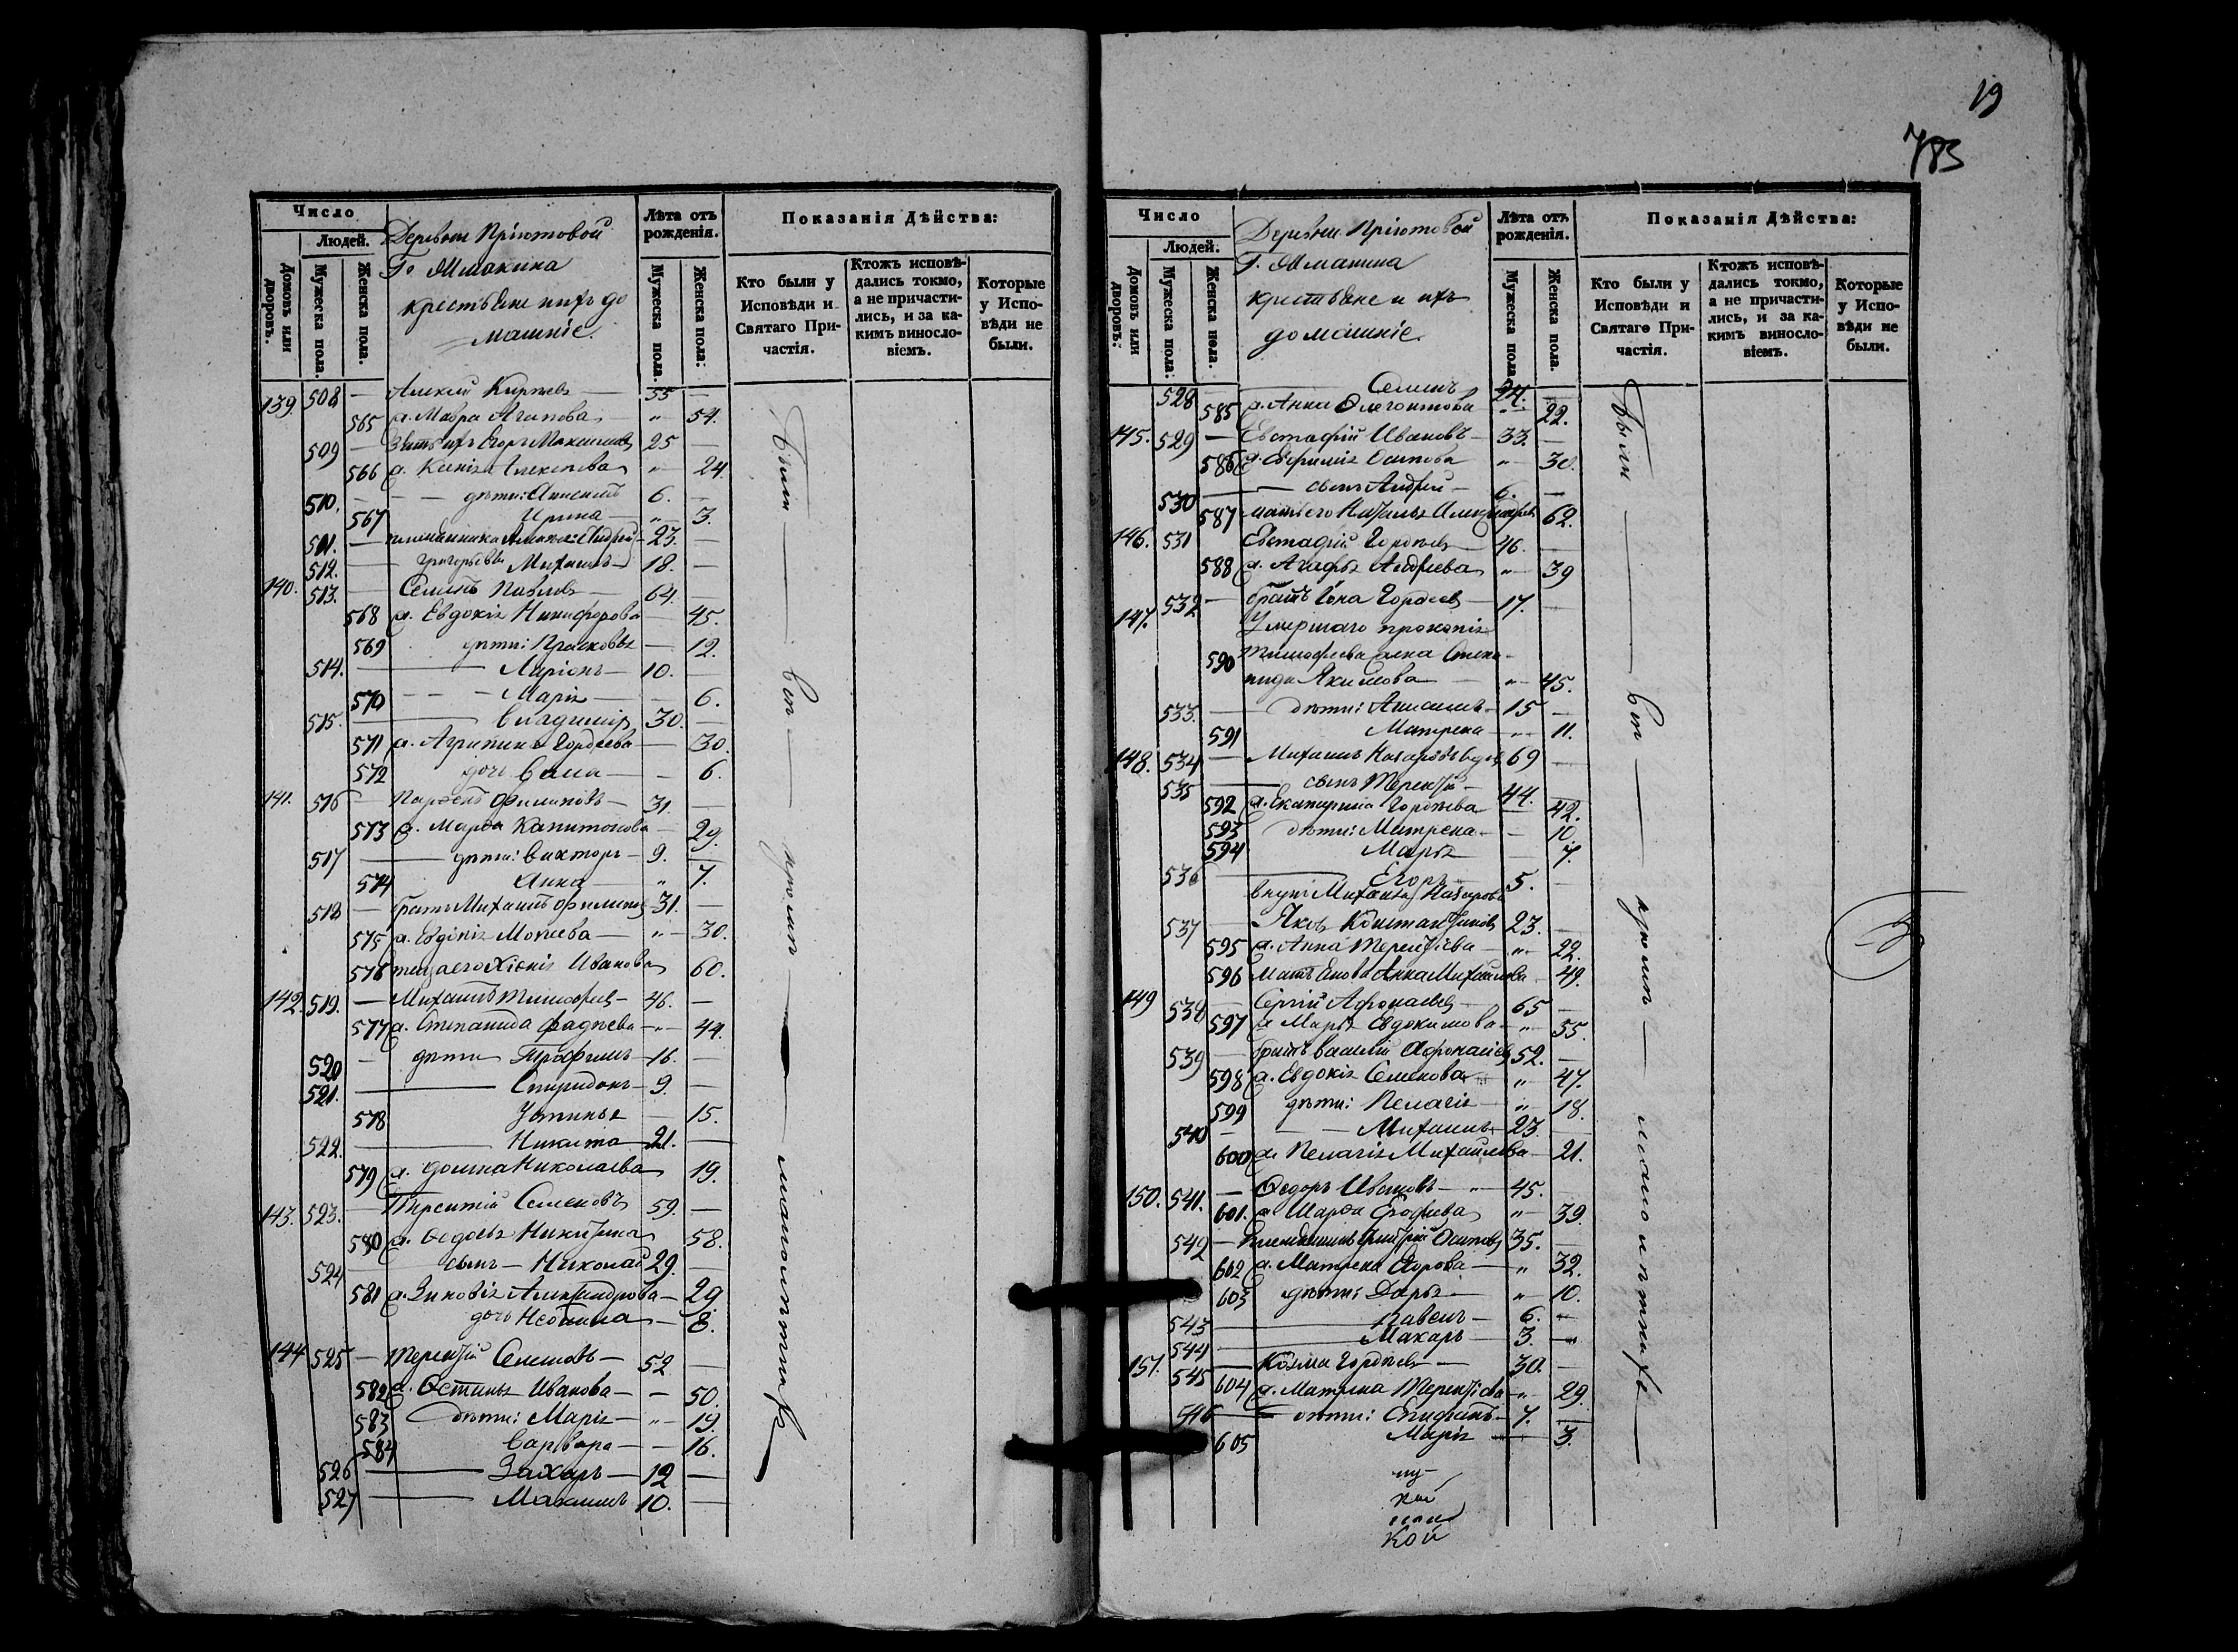 Число
Людей.
Домовъ или дворовъ.
Мужеска пола.
Женска пола.
Деревни Пріютовой
Г.
крестьяне и ихъ до
машніе.
Лѣта отъ рожденія.
Мужеска пола.
Женска пола:
Показанія Дѣйства:
Кто были у Исповѣди и Святаго Причастія.
Ктожъ исповѣдались токмо, а не причастились, и за какимъ винословіемъ.
Которые у Исповѣди не были.
139. 508 — Алексій — 55 —
565 ж. Мавра Агапова „ 54.
509 — Зять ихъ Егоръ Максимовъ 25 —
566 ж. Ксенія Алексѣева „ 24.
510. — дѣти: 6. —
567 Ирина — „ 3.
511. — 23. —
512. — Григорьевы Михаилъ 18. —
140. 513. — Семенъ Павловъ — 64. —
568 ж. Евдокія Никифорова — 45.
569 дѣти: Прасковья — 12.
514. — Ларіонъ — 10. —
570 — Марія — 6.
515. — Владимір 30. —
571 ж. Агрипина Гордѣева — 30.
572 дочь — 6.
141. 516 — Парфенъ Филиповъ — 31. —
573 ж. Марфа Капитонова — 29.
517 — дѣти: Викторъ — 9. —
574 Анна — „ 7.
518 — братъ Михаилъ Филипов 31. —
575 ж. Мокѣева — „ 30.
576 теща его Хіонія Иванова 60.
142. 519. — Михаилъ Тимофеев — 46. —
577 ж. Степанида Фадѣева — „ 44.
520 — дѣти Трофимъ — 16. —
521. — Спиридонъ — 9. —
578 Устинья — 15.
522. — Никита — 21. —
579 ж. Домна Николаева 19.
143. 523. — Терентій Семеновъ 59. —
580 ж. Федосья Никитина 58.
524 — сынъ — Николай 29. —
581 ж. Зиновія Александрова — 29
дочь — 8.
144 525 — Терентій Семеновъ — 52 —
582 ж. Устинья Иванова — 50.
583 дѣти: Марія — „ 19.
584 Варвара — 16.
526 — Захаръ — 12 —
527 — Максимъ 10. —
Были — вси — кроми — малолѣтнихъ
19
783
Число
Людей.
Домовъ или дворовъ:
Мужеска пола:
Женска пола.
Деревни Пріютовой
Г.
крестьяне и ихъ
домашніе.
Лѣта отъ рожденія.
Мужеска пола.
Женска пола.
Показанія Дѣйства:
Кто были у Исповѣди и Святаго Причастія.
Ктожъ исповѣдались токмо, а не причастились, и за какимъ винословіемъ.
Которые у Исповѣди не были.
528 — Семенъ 24. —
585 ж. Анна 22.
145. 529 — Евстафій Ивановъ — 33. —
586 ж. Ефимія Осипова „ 30.
530 — сынъ Андрей — 6. —
587 мать его Наталья 62.
146. 531 Евстафій Гордѣевъ 46. —
588 ж. Агафья Андреева „ 39
532 — братъ Іона Гордеев — 17. —
147. Умершаго Прокопія
590 Тимофеева жена Степа-
нида Якимова — „ 45.
533. — дѣти: Анисимъ — 15 —
591 Матрена — „ 11.
148. 534 — Михаилъ Назаровъ вдов 69 —
535 — сынъ Терентій — 44. —
592 ж. Екатерина Гордѣева — 42.
593 дѣти: Матрена — 10.
594 Марья — 7.
536 — Егоръ 5. —
внукъ Михаила Назарова
537 — Яковъ Константиновъ 23. —
595 ж. Анна Терентіева — „ 22.
596 Мать Анна Михайлова 49.
149 538 — Сергій Афонасьев 65 —
597 ж Марья Евдокимова „ 55.
539 — братъ Василій Афонасіев 52. —
598 ж. Евдокія Семенова „ 47.
599 дѣти: Пелагія „ 18.
540 — Михаилъ 23. —
600 ж Пелагія Михайлова — 21.
150. 541. — Федоръ Ивановъ — 45. —
601. ж Марфа Ерофеева „ 39.
542 — Племянникъ Димитрій Осипов 35. —
602 ж. Матрена — „ 32.
603 дѣти: Дарья — „ 10.
543 — Павелъ — 6. —
544 — Макаръ — 3. —
151. 545 — Козма Гордѣевъ — 30. —
604 ж. Матрена Терентіева — „ 29.
546 — дѣти: 7. —
605 Марія — 3.
кой
Были — вси — кроми — малолѣтнихъ